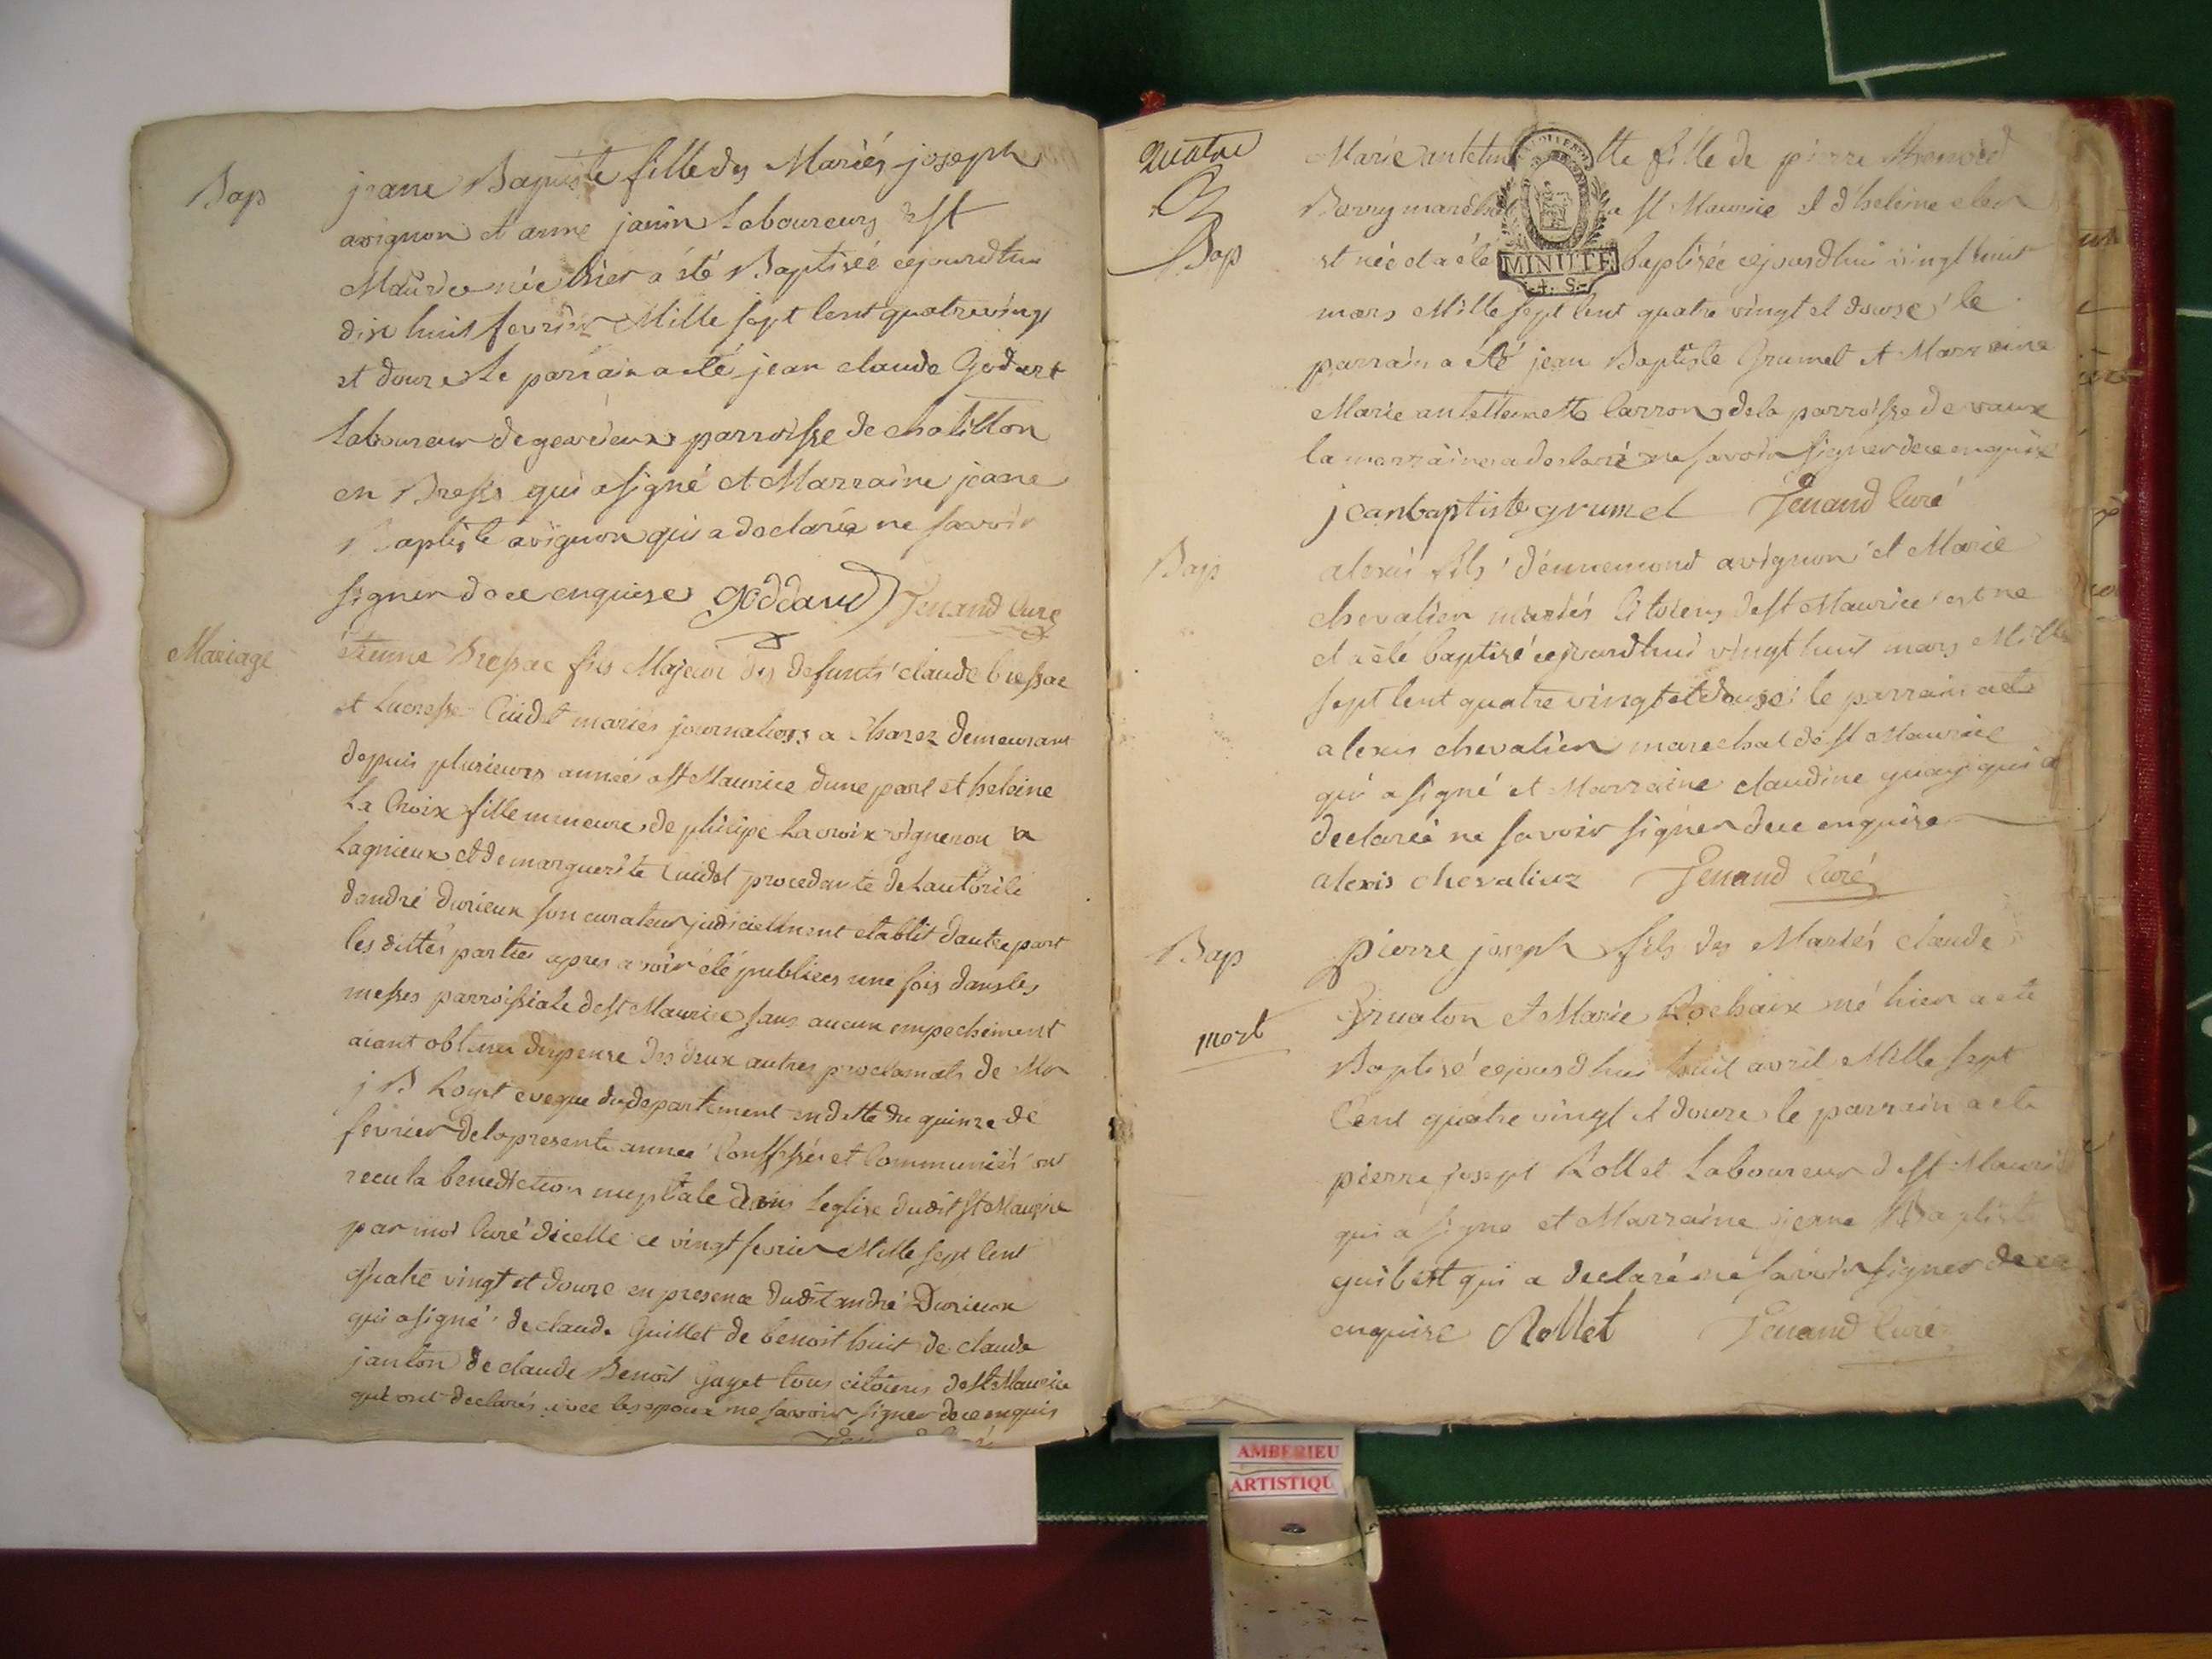 Bap
jeane Baptiste fille des Mariés joseph
avignon et anne janin Laboureurs de St
Maurice née hier a été Baptisée cejourdhui
dix huit fevrier Mille sept Cent quatrevingt
et douze Le parrain a eté jean claude Godart
Laboureur de parroisse de chatillon
en Bresse qui a signé et Marraine jeane
Baptiste avignon qui a declarée ne savoir
signer de ce enquise goddard Curé
Mariage
étienne Bressac fils Majeur des defunts claude bressac
et Lucresse Cuidet mariés journaliers a demeurant
depuis plusieurs années a St Maurice dune part et heleine
La Croix fille mineure de philipe Lacroix vigneron a
Lagnieux et de marguerite Cuidet procedante de Lautorité
dandré durieux son curateur judiciellement etablit dautre part
les dittes parties apres avoir été publiées une fois dans les
messes parroissiale de St Maurice sans aucun empechement
aiant obtenu dispense des deux autres proclamats de Mr
j B Royet eveque du departement en datte du quinze de
fevrier de la presente année Confessés et Communiés ont
recu la benediction nuptiale dans Leglise dudit St Maurice
par moi Curé dicelle ce vingt fevrier Mille sept Cent
quatre vingt et douze en presence dudit andré Durieux
qui a signé de claude Guillet de benoit huit de claude
janton de claude Benoit Gayet tous citoiens de St Maurice
qui ont declarés avec les epoux ne savoir signer de ce enquis
quatre
Bap
Marie antelm tte fille de pierre
Berry marechal a St Maurice et d'heleine
et née et a été MINUTE baptisée cejourdhui vingt huit
4. S.
mars Mille sept Cent quatre vingt et douze le
parrain a été jean Baptiste Grumet et Marraine
Marie antelmette Carron de la parroisse de vaux
la marraine a declaré ne savoir signer de ce enquise
jeanbaptiste grumel Curé
Bap
alexis fils dennemond avignon et Marie
chevalier mariés Citoiens de St Maurice est ne
et a été baptisé cejourdhui vingt huit mars Mille
sept Cent quatre vingt et douze le parrain a ete
alexis chevalier marechal de St Maurice
qui a signé et Marraine claudine qui a
declarée ne savoir signer de ce enquise
alexis chevalier Curé
Bap
pierre joseph fils des Mariés claude
et Marie Rochaix né hier a ete
mort
Baptisé cejourdhui huit avril Mille sept
Cent quatre vingt et douze le parrain a ete
pierre josept Rollet Laboureur de St Maurice
qui a signe et Marraine jeane Baptiste
guibert qui a declaré ne savoir signer de ce
enquise Rollet Curé
AMBERIEU
ARTISTIQU